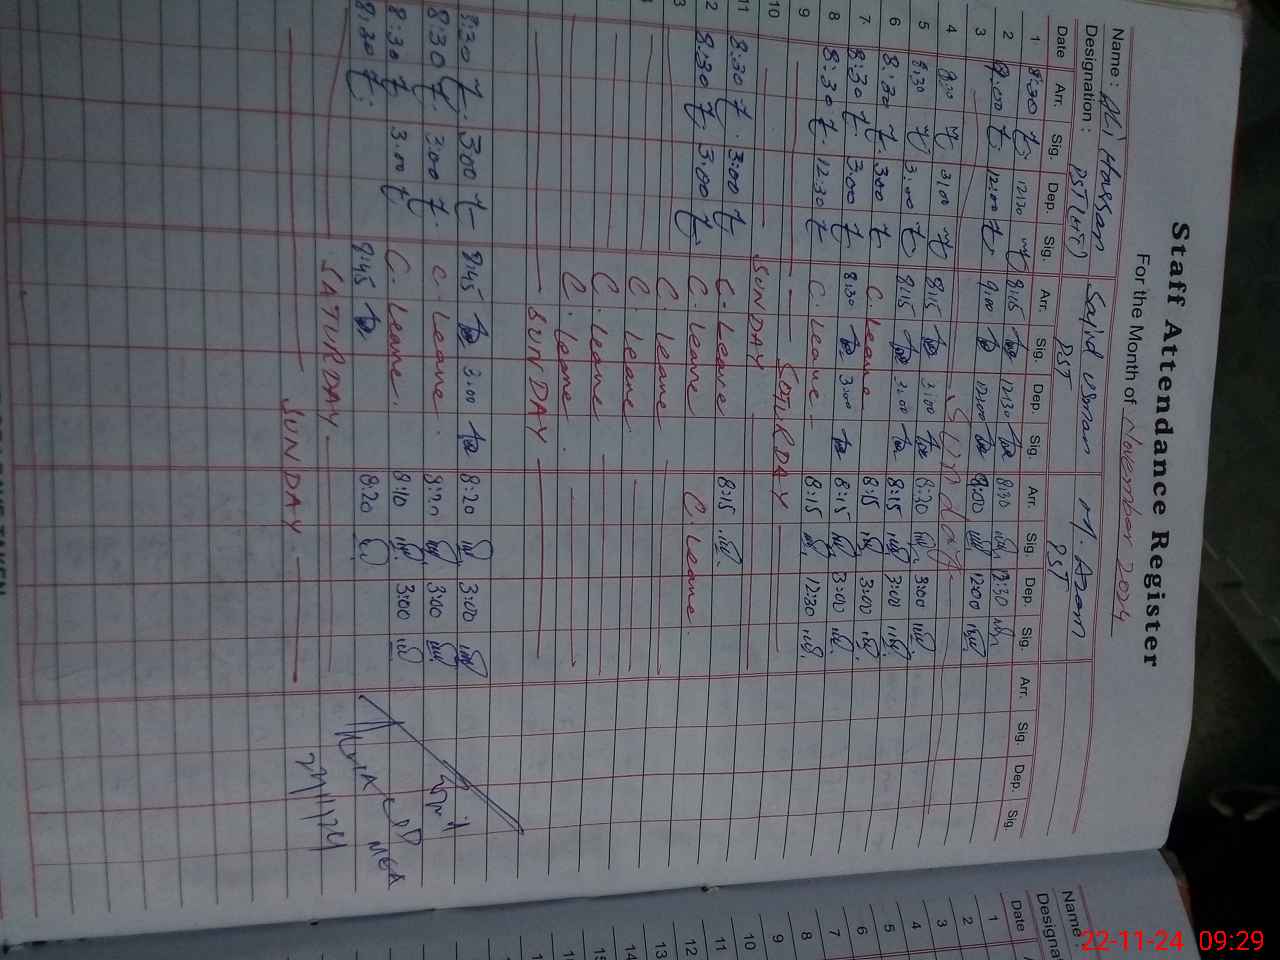 Staff Attendance Register
For the Month of November 2024
Name : Ali Hassan Sajid Usman M. Azam
Designation : PST (HT) PST PST
Date Arr. Sig. Dep. Sig. Arr. Sig. Dep. Sig. Arr. Sig. Dep. Sig. Arr. Sig. Dep. Sig.
1 8:30 12:30 8:15 12:30 8:30 12:30
2 9:00 12:00 9:00 12:00 9:00 12:00
3 Sunday
4 8:30 3:00 8:15 3:00 8:20 3:00
5 8:30 3:00 8:15 3:00 8:15 3:00
6 8:30 3:00 C. Leave 8:15 3:00
7 8:30 3:00 8:30 3:00 8:15 3:00
8 8:30 12:30 C. Leave 8:15 12:30
9 SATURDAY
10 SUNDAY
11 8:30 3:00 C. Leave 8:15
12 8:30 3:00 C. Leave C. Leave
C. Leave
C. Leave
C. Leave
C. Leave
SUNDAY
8:30 3:00 8:45 3:00 8:20 3:00
8:30 3:00 C. Leave 8:20 3:00
8:30 3:00 C. Leave 8:10 3:00
8:30 8:45 8:20
SATURDAY
SUNDAY
MEA
Name :
Date
1
2
3
4
5
6
7
8
9
10
11
12
13
14
15
22-11-24 09:29